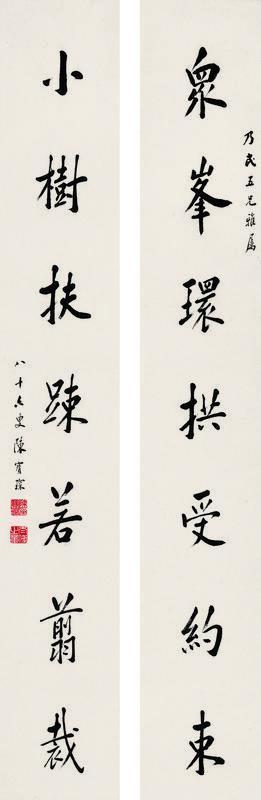 乃民五兄雅属
眾峯環拱受約束
小樹扶踈若翦裁
八十六叟陳寶琛